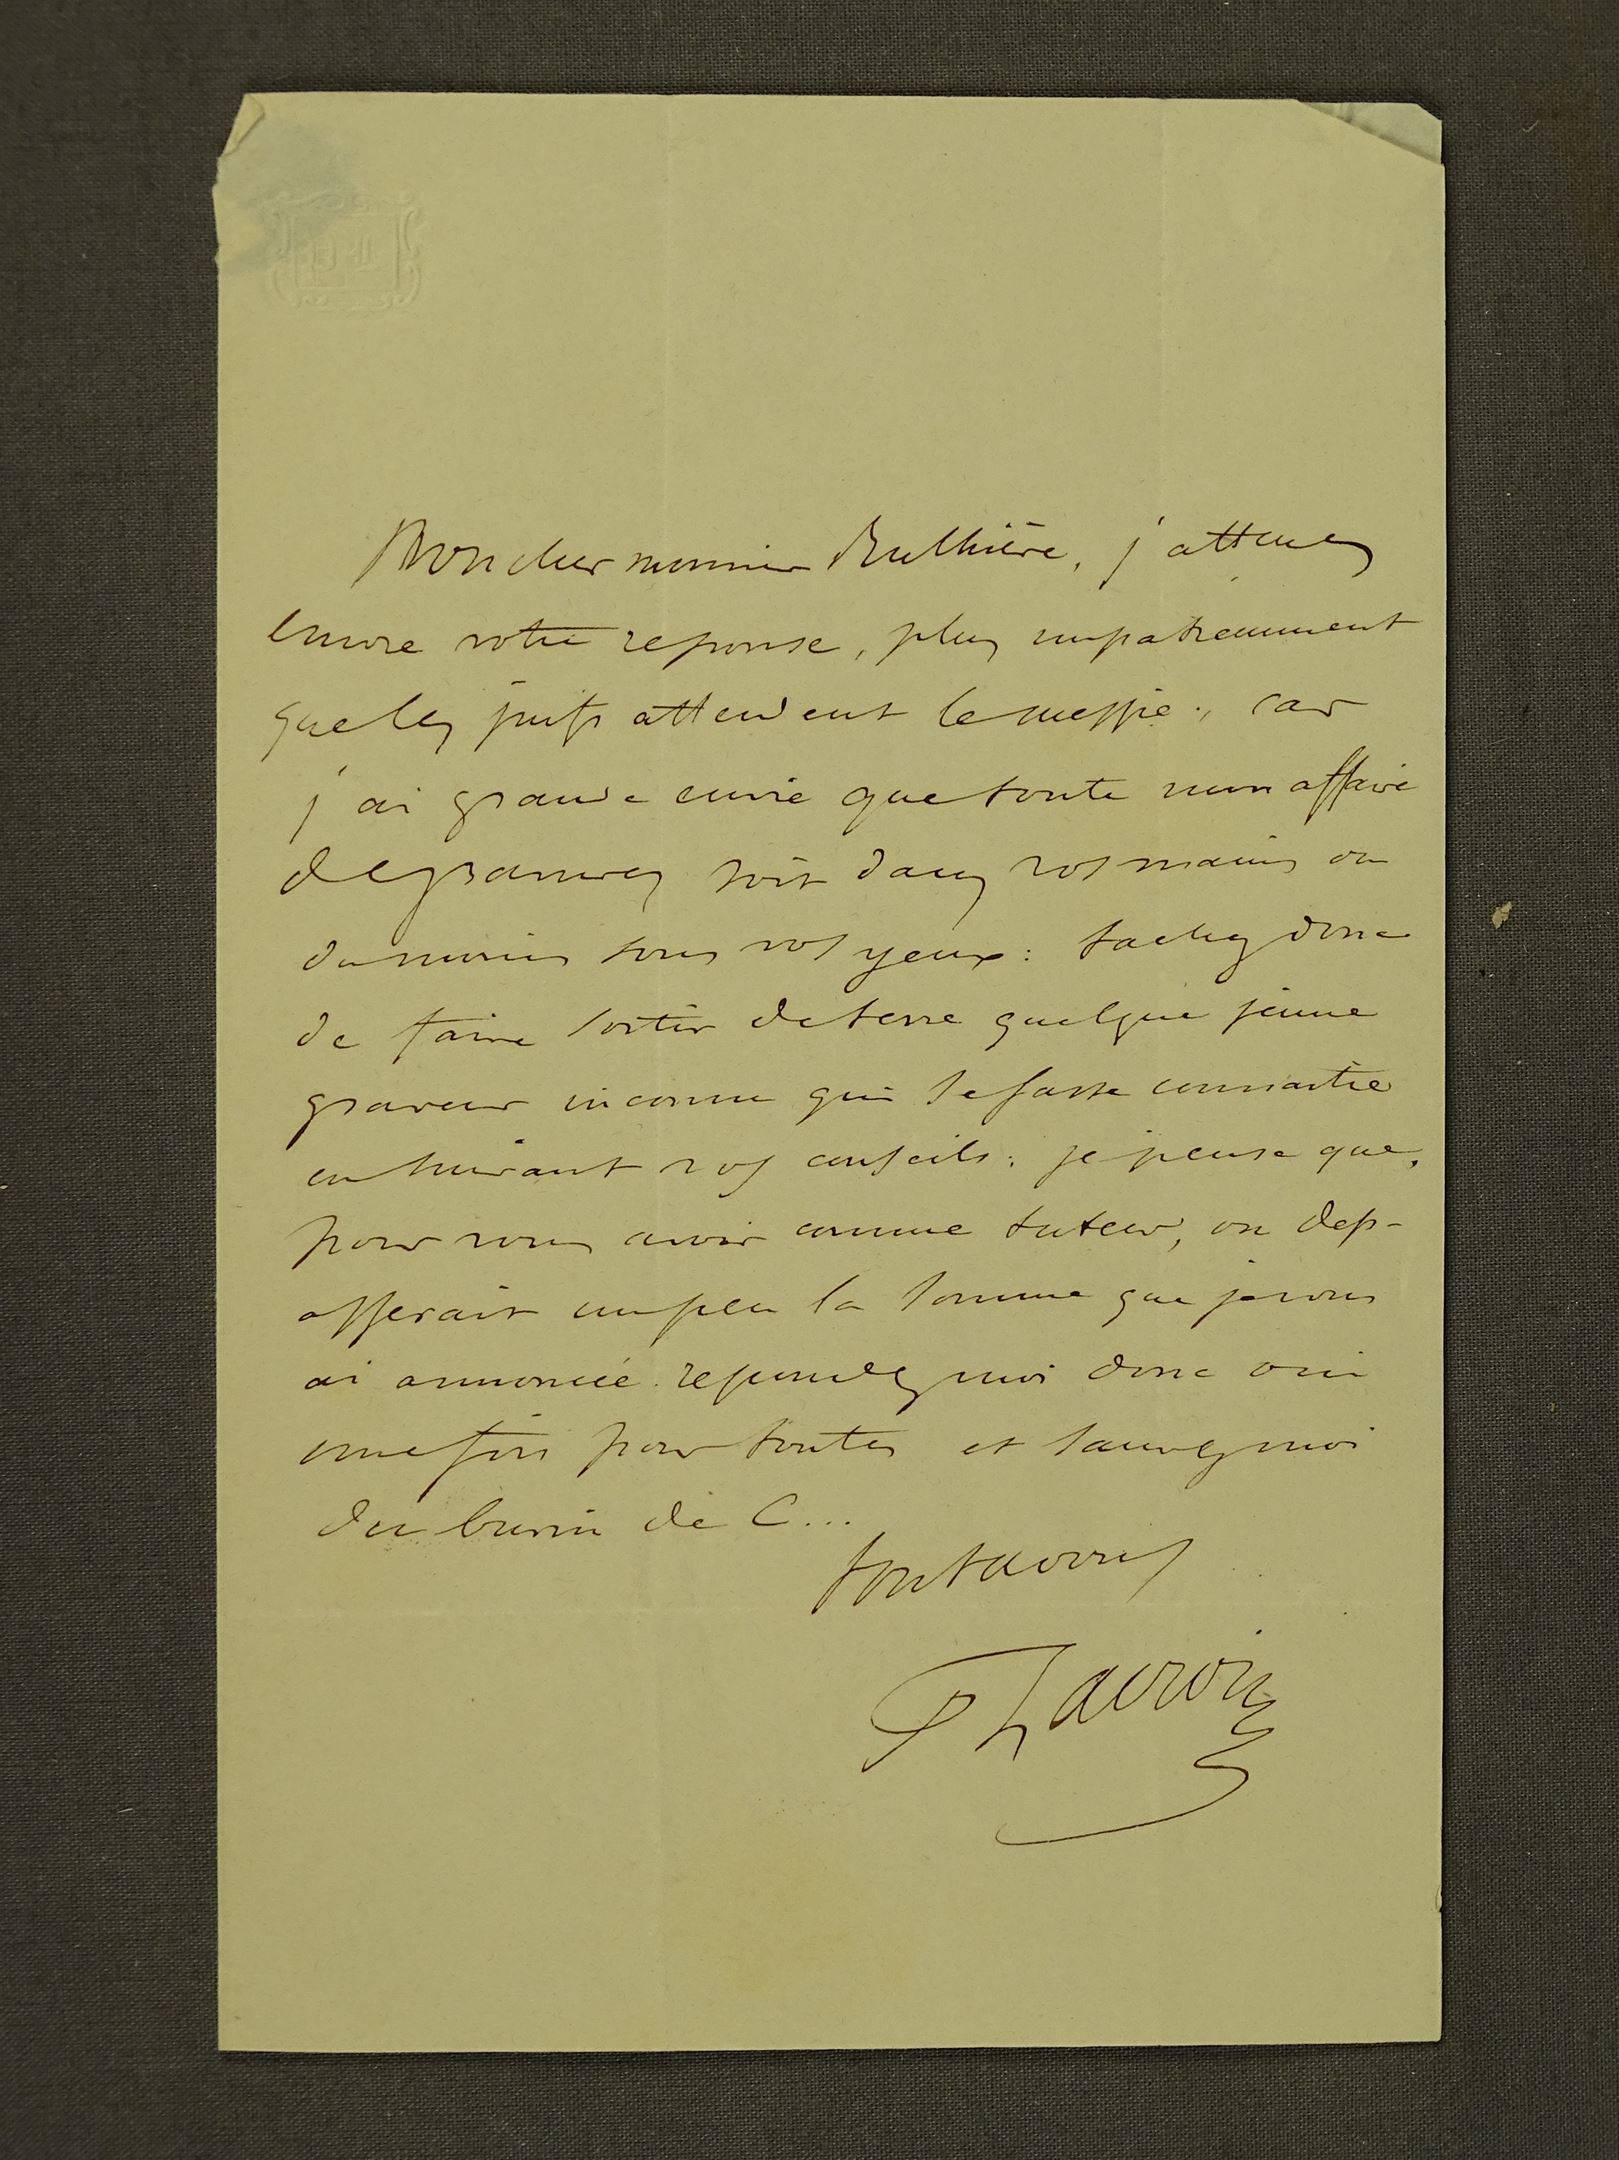 Mon cher monsieur Rulhière, j'attens
encore votre reponse, plus impatiemment
que les juifs attendent le messie, car
j'ai grande envie que toute mon affaire
de gravures soit dans vos mains ou
du moins sous vos yeux : tachez donc
de faire sortir de terre quelque jeune
graveur inconnu qui se fasse connaitre
en suivant vos conseils : je pense que,
pour vous avoir comme tuteur, on dep-
asserait un peu la somme que je vous
ai annoncée. repondez moi donc oui
une fois pour toutes et sauvez moi
du burin de C...
tout a vous
P Lacroix